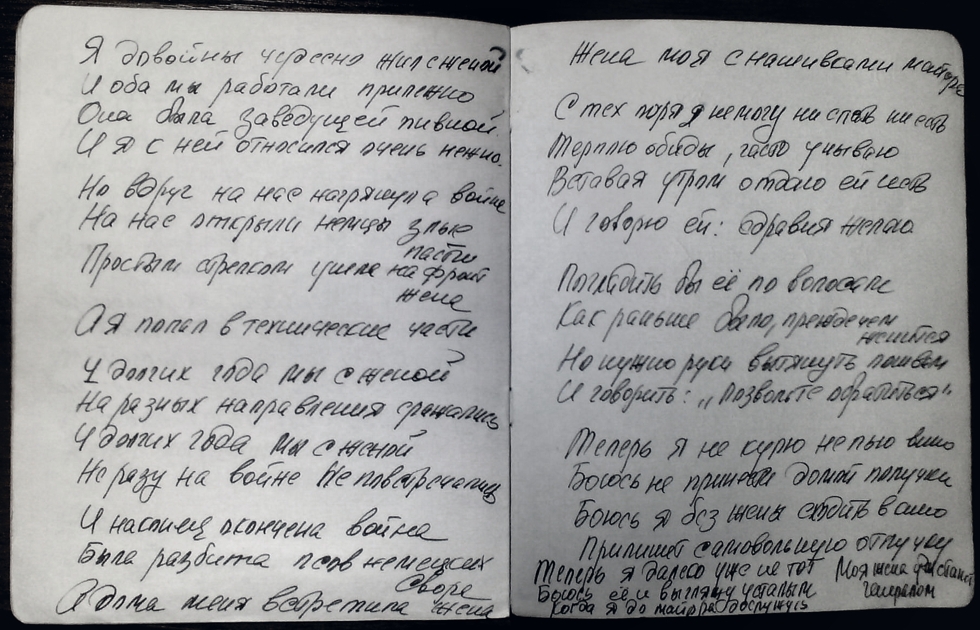 Я до войны чудесно жил с женой
И оба мы работали прилежно
Она была заведущей пивной
И я с ней относился очень нежно.
Но вдруг на нас нагрянула война
На нас открыли немцы злые
пасти
Простым стрелком ушла на фронт
жена
А я попал в технические части
4 долгих года мы с женой
На разных направления сражались
4 долгих года мы с женой
Не разу на войне не повстречались
И наконец окончена война
Была разбита псов немецких
свора
А дома меня встретила жена
Жена моя с нашивками майора
С тех пор я не могу ни спать ни есть
Терплю обиды, часто унываю
Вставая утром отдаю ей честь
И говорю ей: здравия желаю
Погладить бы её по волосам
Как раньше было, прежде чем
жениться
Но нужно руки вытянуть по швам
И говорить: „Позвольте обратиться"
Теперь я не курю не пью вино
Боюсь не принести домой получки
Боюсь я без жены сходить в кино
Припишет самовольную отлучку
Теперь я далеко уже не тот
Боюсь её и выгляжу усталым
Когда я до майора дослужусь
Моя жена станет
генералом